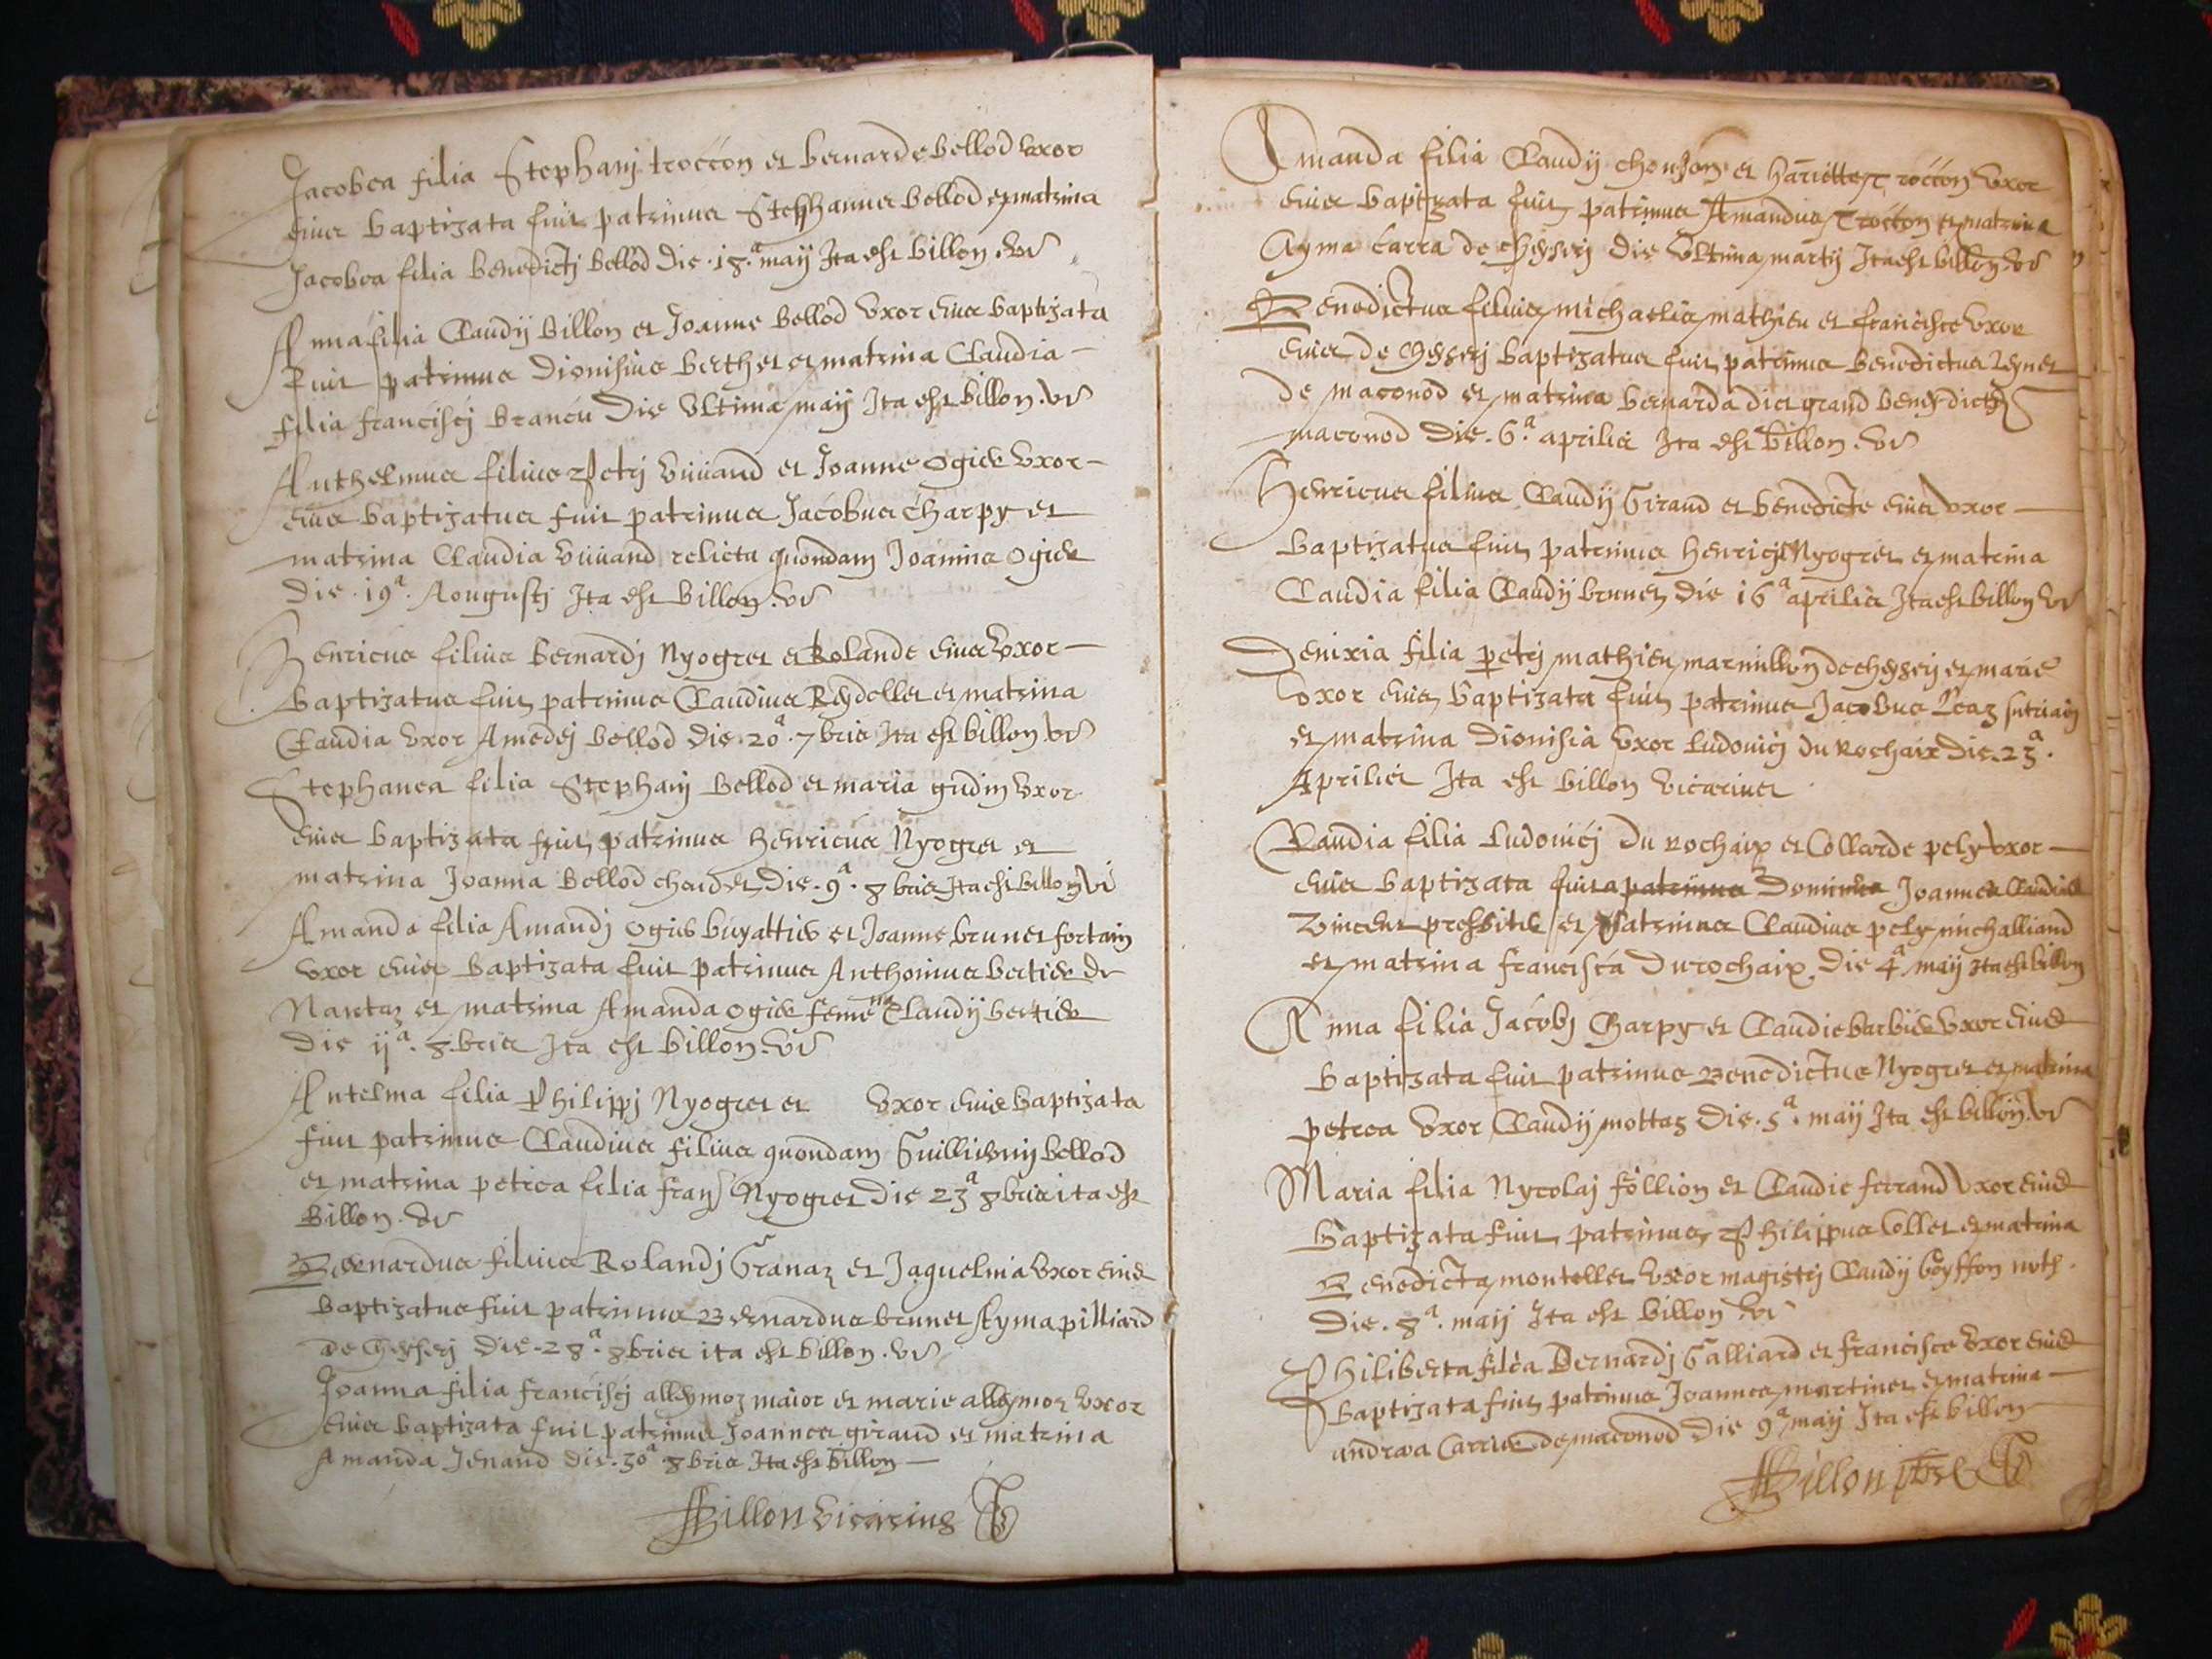 Jacobea filia Stephanj trocton et bernarde bellod uxor
eius baptizata fuit patrinus Stephanus bellod et matrina
Jacobea filia benedictj bellod die .18.a maij Ita est billon .vi
Anna filia Claudij billon et Joanne bellod uxor eius baptizata
fuit patrinus dionisius berthet et matrina Claudia
filia franciscj brancu die ultima maij Ita est billon .vi
Anthelmus filius Petrj vuuand et Joanne ogier uxor
eius baptizatus fuit patrinus Jacobus Charpy et
matrina Claudia vuuand relicta quondam Joannis ogier
die .19a. Aougustj Ita est billon .vi
Henricus filius bernardj Nyogret et Rolande eius uxor
baptizatus fuit patrinus Claudius Reydellet et matrina
Claudia uxor Amedej bellod die .20a .7bris Ita est billon vi
Stephanea filia Stephanj bellod et maria gudin uxor
eius baptizata fuit patrinus henricus Nyogret et
matrina Joanna bellod die .9a. 8bris Ita est billon vi
Amanda filia Amandj ogier buyattier et Joanne brunet fortain
uxor eius baptizata fuit patrinus Anthonius bertier de
Nantaz et matrina Amanda ogier Claudij bertier
die ija. 8bris Ita est billon .vi
Antelma filia Philippj Nyogret et uxor eius baptizata
fuit patrinus Claudius filius quondam Guilliermj bellod
et matrina petrea filia Nyogret die 23a 8bris ita est
Billon .vi
Bernardus filius Rolandj Granaz et Jaquelina uxor eius
baptizatus fuit patrinus Bernardus brunet Ayma pilliard
de Cheyserj die .28a. 8bris ita est billon .vi
Joanna filia franciscj alleymoz maior et marie alleymoz uxor
eius baptizata fuit patrinus Joannes giraud et matrina
Amanda Jenand die .30a .8bris Ita est billon
Billon vicarius
Amanda filia Claudij et trocton uxor
eius baptizata fuit patrinus Amandus Trocton et matrina
Ayma Carra de Cheyserj die ultima martij Ita est billon .vi
Benedictus filius michaelis mathieu et francisce uxor
eius de Cheyserj baptizatus fuit patrinus benedictus Reynet
de maconod et matrina bernarda dict grand
maconod die .6.a aprilis Ita est billon .vi
Henricus filius Claudij Giraud et benedicte eius uxor
baptizatus fuit patrinus Nyogret et matrina
Claudia filia Claudij brunet die 16a aprilis Ita est billon vi
Denixia filia petrj mathieu marmillion de cheyserij et marie
uxor eius baptizata fuit patrinus Jacobus
et matrina dionisia uxor ludovicj du Rochaix die .23a.
Aprilis Ita est billon vicarius
Claudia filia Ludovicj Du rochaix et Collarde pely uxor
eius baptizata fuit a patrinus Joannes
presbiter et Patrinus Claudius pely michalliand
et matrina francisca Durochaix die 4a maij Ita est billon
Anna filia Jacobj Charpy et Claudie barbier uxor eius
baptizata fuit patrinus Benedictus Nyogret et matrina
petrea uxor Claudij mottaz die .5a. maij Ita est billon .vi
Maria filia Nycolaj follion et Claudie ferrand uxor eius
baptizata fuit patrinus Philippus Collet et matrina
Benedicta montellet uxor magistrj Claudij boyffon noth.
die .8a. maij Ita est billon .vi
Philiberta filia Bernardj Galliard et francisce uxor eius
baptizata fuit patrinus Joannes martinet et matrina
andrea Carrier de maconod die 9a maij Ita est billon
Billon pbre